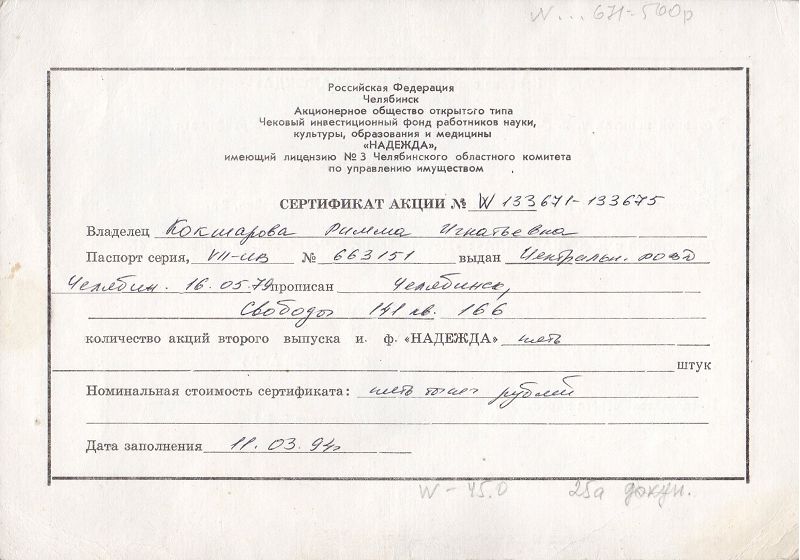 N ... 671-500р
Российская Федерация
Челябинск
Акционерное общество открытого типа
Чековый инвестиционный фонд работников науки,
культуры, образования и медицины
«НАДЕЖДА»,
имеющий лицензию №3 Челябинского областного комитета
по управлению имуществом
СЕРТИФИКАТ АКЦИИ № W 133671-133675
Владелец Кокшарова Римма Игнатьевна
Паспорт серия, VII-ИВ № 663151 выдан Центральн. РОВД
Челябин. 16.05.79 прописан Челябинск,
Свободы 141 кв. 166
количество акций второго выпуска и. ф. «НАДЕЖДА» пять
штук
Номинальная стоимость сертификата: пять тысяч рублей
Дата заполнения 11.03.94г
W-45.0 25а докум.